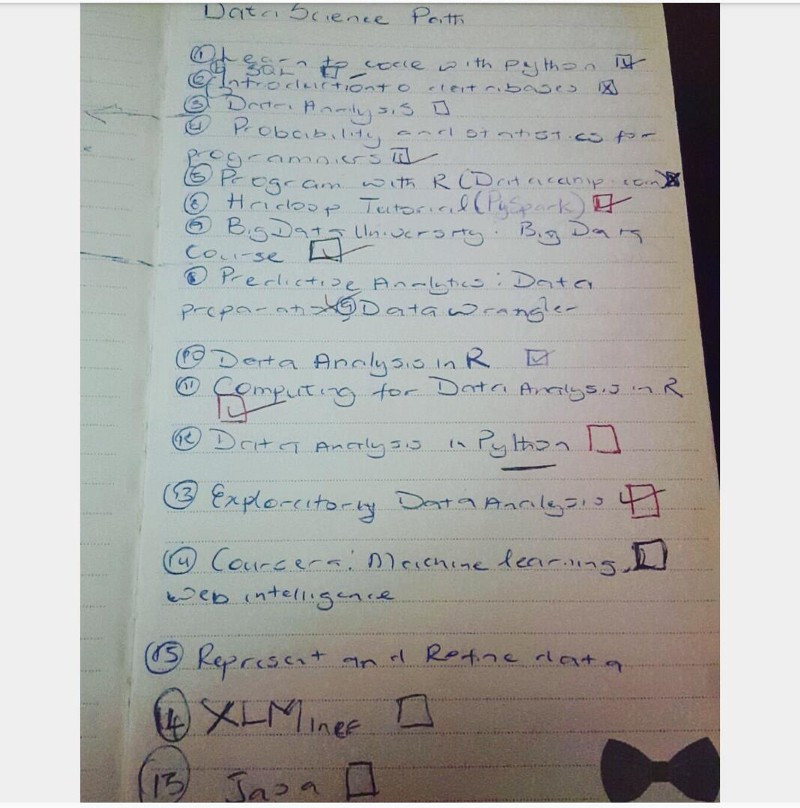 Data Science Path
① Learn to code with python
SQL
② Introduction to databases
③ Data Analysis
④ Probability and statistics for
programmers
⑤ Program with R (Datacamp.com)
⑥ Hadoop Tutorial (PySpark)
⑦ Big Data University: Big Data
Course
⑧ Predictive Analytics: Data
preparation ⑨ Data wrangler
⑩ Data Analysis in R
⑪ Computing for Data Analysis in R
⑫ Data Analysis in Python
⑬ Exploratory Data Analysis
⑭ Coursera: Machine learning,
Web intelligence
⑮ Represent and Refine data
⑭ XLMiner
⑮ Java